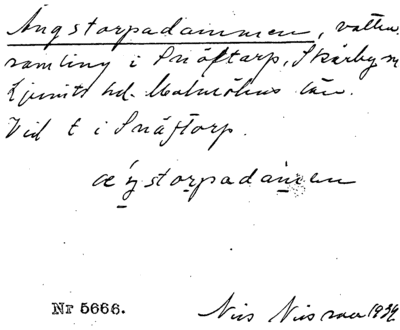 Ängstorpadammen, vatten-
samling i Snáftorp, Skårby sn
Ljunits hd. Malmöhus län.
Vid t i Snáftorp.
æŋstorpadamen
Nr 5666.
Nils Nilsson 1934